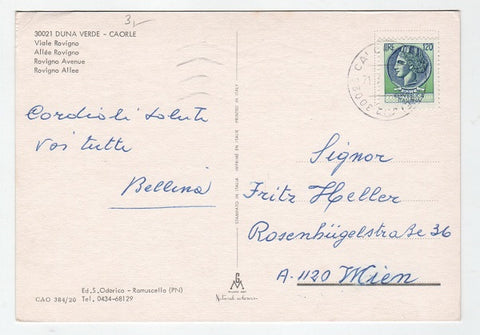 3,-
30021 DUNA VERDE - CAORLE
Viale Rovigno
Allée Rovigno
Rovigno Avenue
Rovigno Allee
LIRE 120
Cordiali saluti
voi tutti
Bellina
STAMPATO IN ITALIA - IMPRIMÉ EN ITALIE - PRINTED IN ITALY
Signor
Fritz Heller
Rosenhügelstraße 36
A-1120 Wien
Ed. S. Oderico - Ramuscello (PN)
CAO 384/20 Tel. 0434-68129